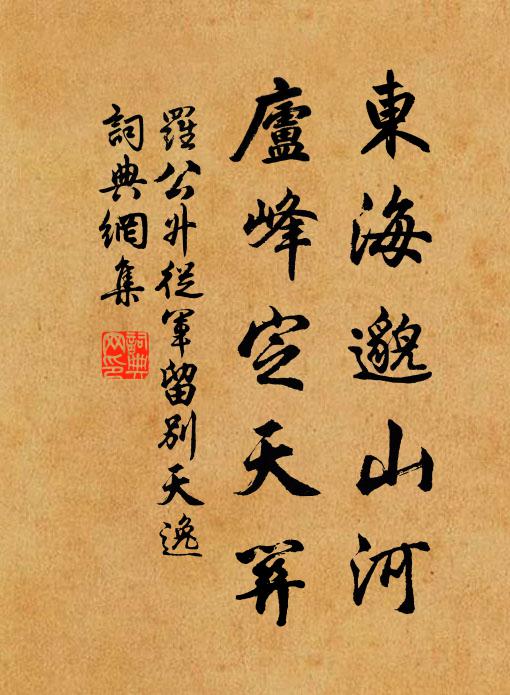 東海邈山河
廬峰定天開
羅公升從軍留別天逸
詞典網集
詞典网印